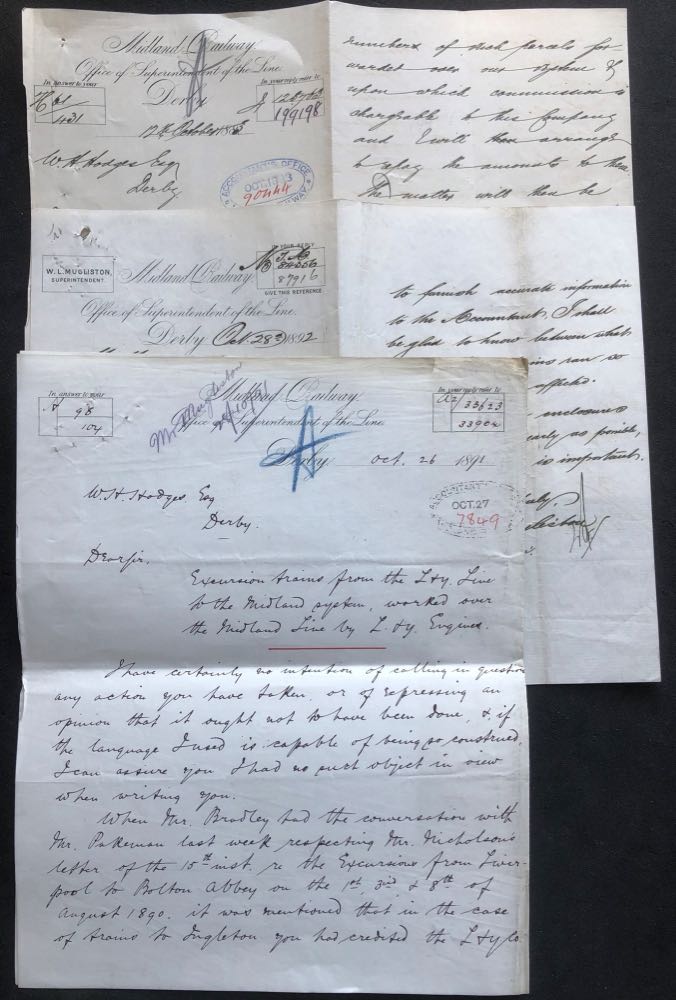 Midland Railway.
Office of Superintendent of the Line.
In answer to your
In your reply refer to
Derby
H 61
431
J
199198
12th October 188
W. H. Hodges Esq
Derby
ACCOUNTANT'S OFFICE
OCT 13
90444
numbers of such parcels for-
warded over our system &
upon which commission is
chargeable to his Company
and I will then arrange
to repay the amounts to them
The matter will then be
W. L. MUGLISTON,
SUPERINTENDENT
Midland Railway.
IN YOUR REPLY
84006
87916
GIVE THIS REFERENCE
Office of Superintendent of the Line.
Derby Oct. 28th 1892
to furnish accurate information
to the Accountant, I shall
be glad to know between what
ins ran so
affected.
enclosures
early as possible,
is important.
Midland Railway.
Office of Superintendent of the Line.
Mr Mugliston
In answer to your
98
104
In your reply refer to
A2/33623
33904
Derby Oct. 26 1891
ACCOUNTANT
OCT. 27
7849
W. H. Hodges Esq
Derby.
Dear Sir,
Excursion trains from the L & Y. Line
to the Midland system, worked over
the Midland Line by L. & Y. Engines.
I have certainly no intention of calling in question
any action you have taken, or of expressing an
opinion that it ought not to have been done, & if
the language I used is capable of being so construed,
I can assure you I had no such object in view
when writing you.
When Mr. Bradley had the conversation with
Mr. Pakeman last week respecting Mr. Nicholson's
letter of the 15th inst. re the Excursions from Liver-
pool to Bolton Abbey on the 1st 3rd & 8th of
August 1890, it was mentioned that in the case
of trains to Ingleton you had credited the L & Y Co